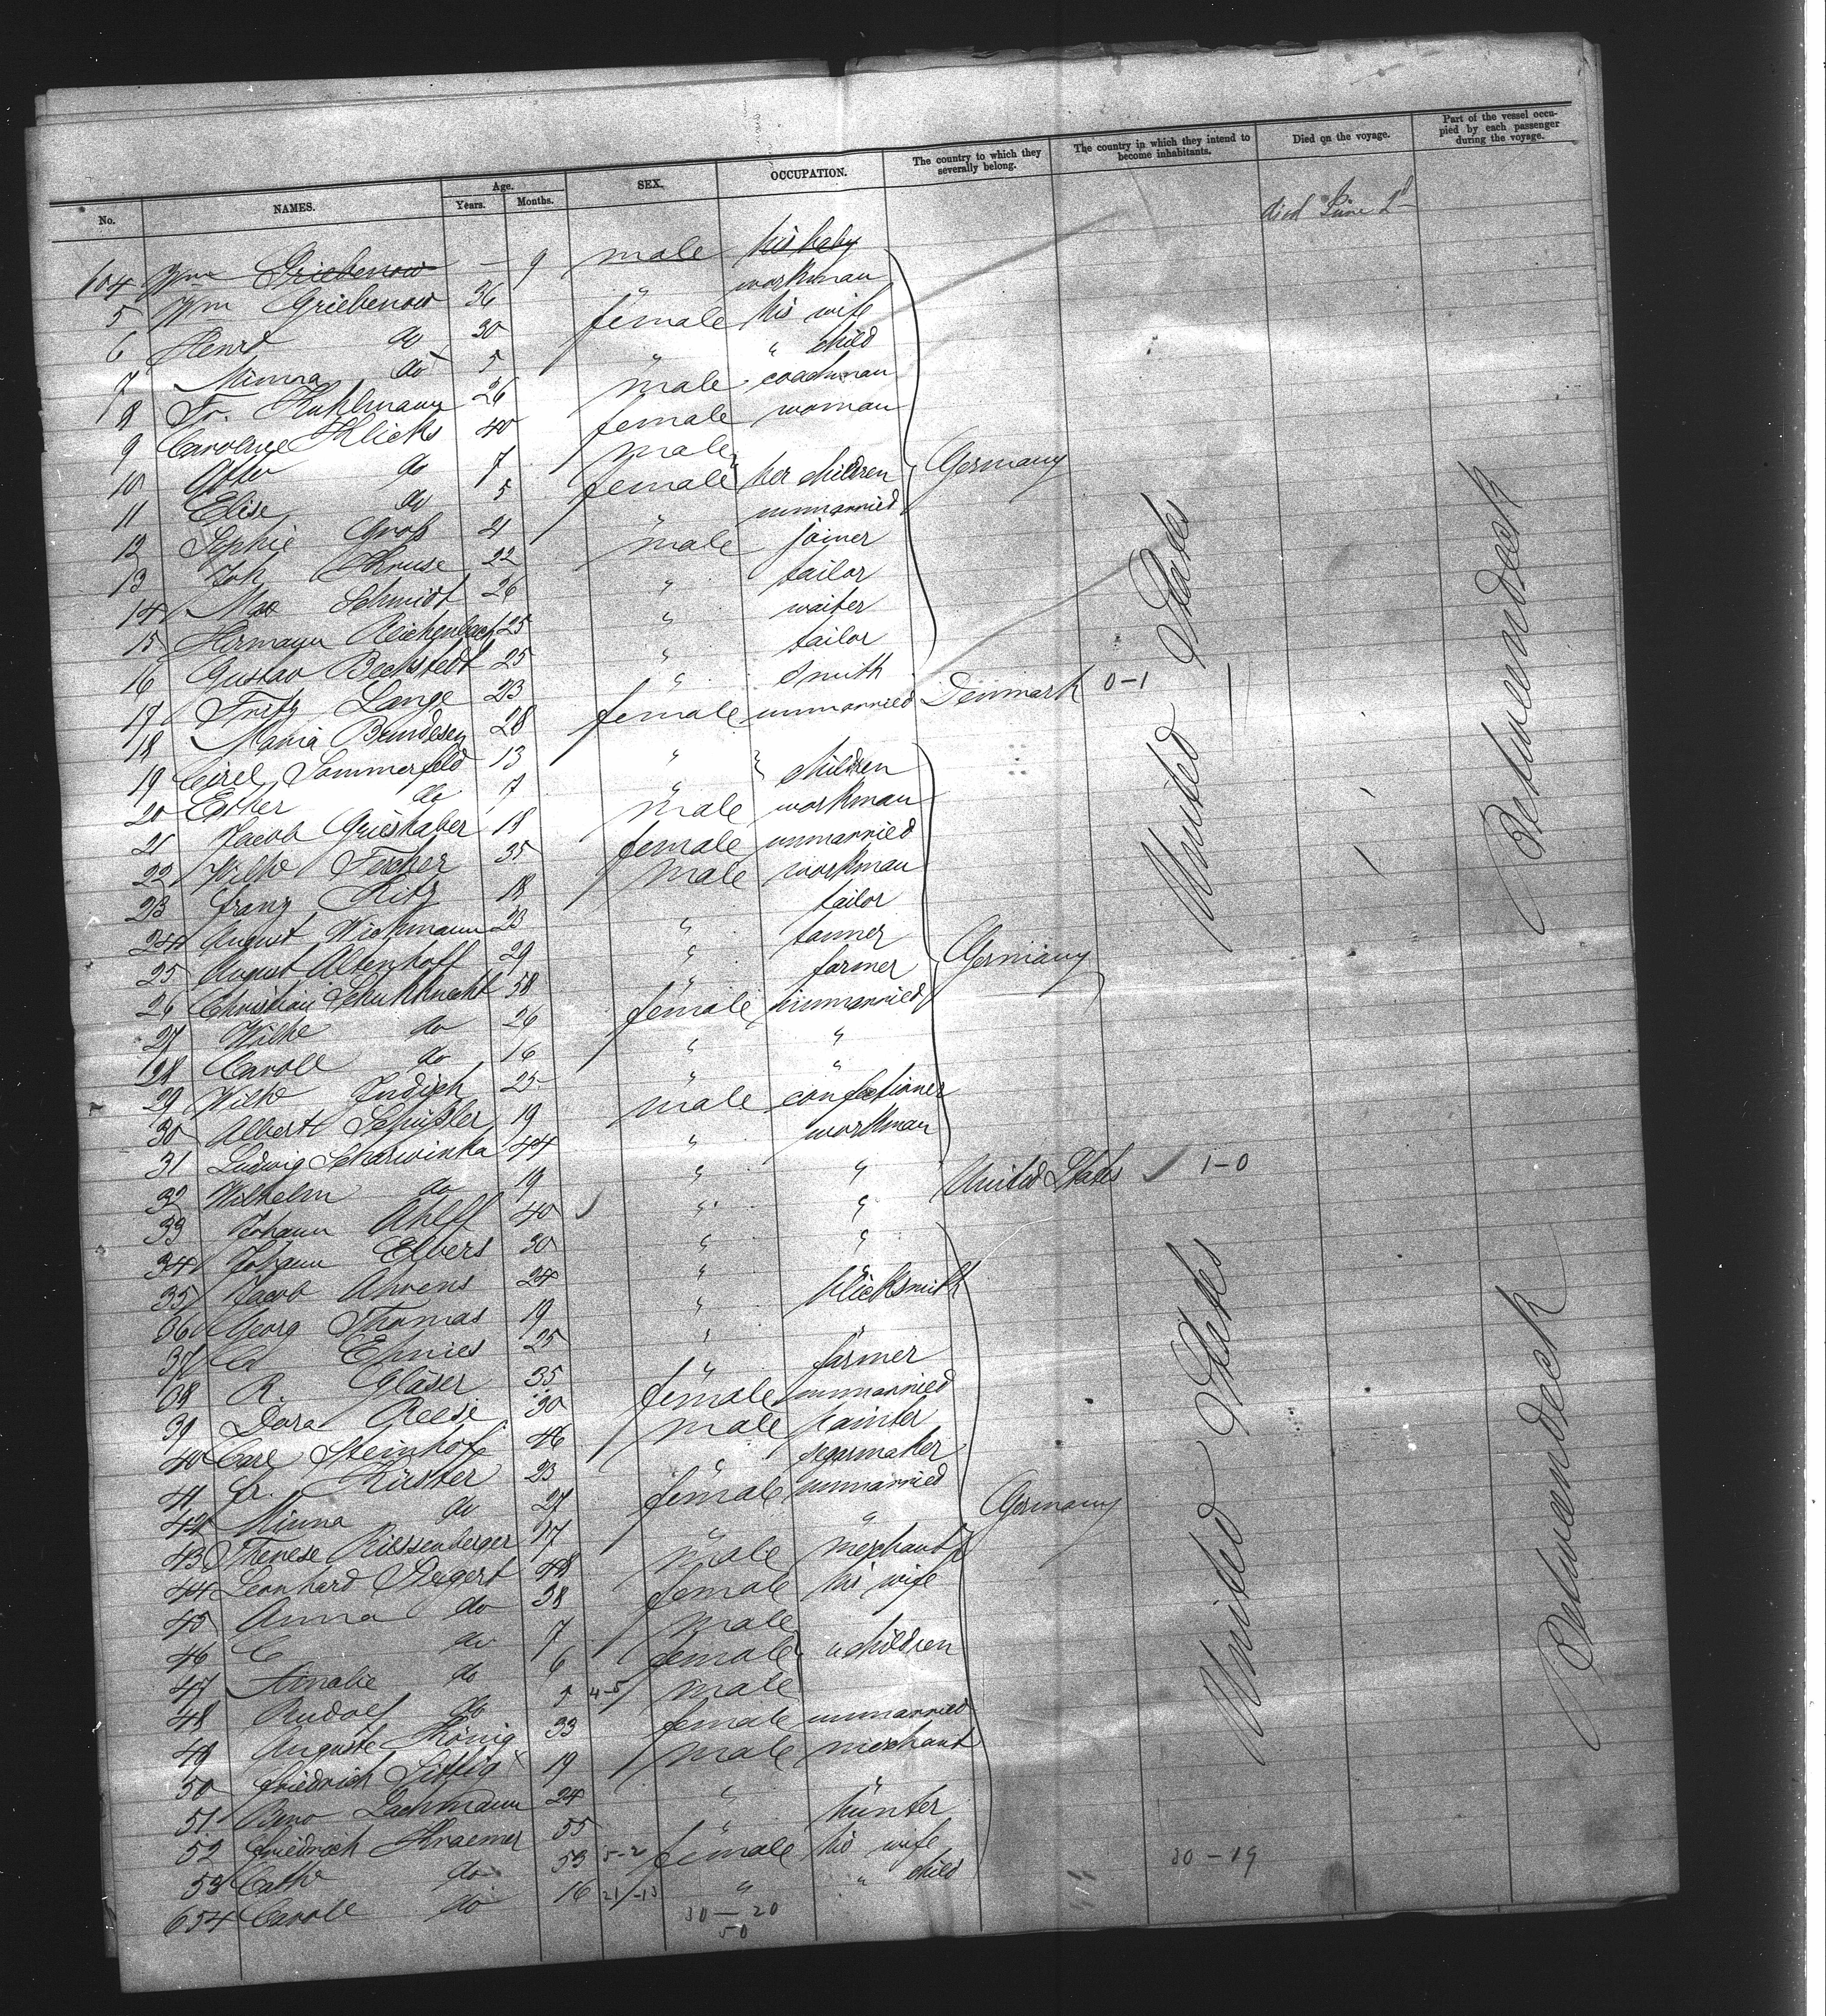 No. NAMES. Age. Years. Months. SEX. OCCUPATION. The country to which they severally belong. The country in which they intend to become inhabitants. Died on the voyage. Part of the vessel occupied by each passenger during the voyage.
604 Wm Griebenow — 9 male his baby died June 2d
5 Wm Griebenow 36 " workman
6 Henrt do 30 female his wife
7 Minna do 5 " " child
8 Fr. Kuhlmann 26 male coachman
9 Caroline Klicks 40 female woman
10 Otto do 7 male
11 Elise do 5 female her children Germany
12 Sophie Groß 21 " unmarried
13 Joh Kruse 22 male joiner
14 Max Schmidt 26 " tailor
15 Hermann Reichenbach 25 " waiter
16 Gustav Bechstedt 25 " tailor
17 Fritz Lange 23 " smith
18 Maria Brundesen 28 female unmarried Denmark 0-1
United States
Betweendeck
19 Cirel Sommerfeld 13 "
20 Esther do 7 " children
21 Jacob Grieshaber 18 male workman
22 Wilhe Fecher 35 female unmarried
23 Franz Ritz 18 male workman
24 August Wichmann 23 " tailor
25 August Altenhoff 29 " tanner
26 Christian Schuhknecht 58 " farmer Germany
27 Wilhe do 26 female unmarried
28 Carole do 16 " "
29 Wilhe Indigh 25 " "
30 Albert Schüßler 19 male confectioner
31 Ludwig Scharwinka 44 " workman
32 Wilhelm do 19 " "
33 Johann Ahlff 40 " " United States 1-0
34 Johann Elbers 30 " "
35 Jacob Ahrens 24 " "
36 Georg Thomas 19 " blicksmith
37 Ehnies 25 " "
38 R. Gläser 35 " farmer
39 Dora Reese 30 female unmarried
40 Carl Steinhof 46 male painter
41 Fr. Kirster 23 " segarmaker
42 Minna do 27 female unmarried
43 Therese Riessenberger 17 " " Germany
44 Leonhard Steigert 48 male merchant
45 Anna do 38 female his wife
46 C do 7 male
47 Amalie do 6 female " children
48 Rudolf do 5 4-5 male
49 Auguste König 33 female unmarried
50 Friedrich Sittig 19 male merchant
51 Beno Lachmann 24 " "
52 Friedrich Kraemer 55 " hunter
53 Cathe do 53 5-2 female his wife
654 Carole do 16 21/-13 " " child
United States
Betweendeck
30-19
30-20
50